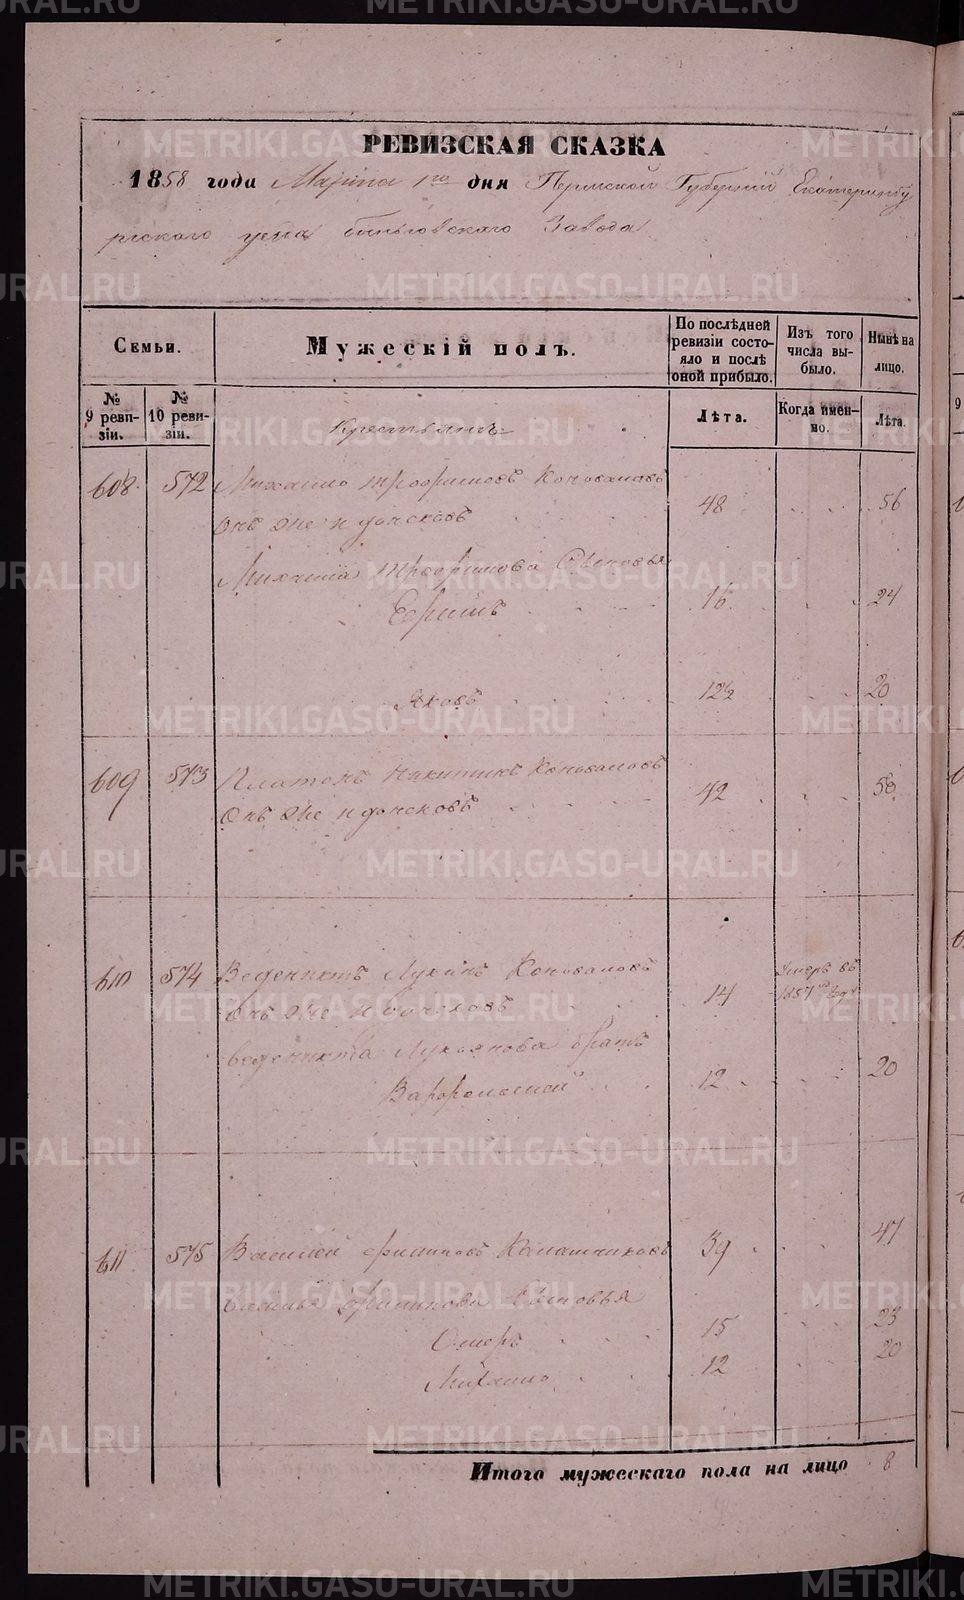 РЕВИЗСКАЯ СКАЗКА
1858 года Марта 1го дня Пермской Губернии Екатеринбу
ргскаго уезда быньговскаго Завода
Семьи.
Мужескій полъ.
По послѣдней ревизіи состояло и послѣ оной прибыло.
Изъ того числа выбыло.
Нынѣ на лицо.
№ 9 ревизіи.
№ 10 ревизіи.
Лѣта.
Когда именно.
Лѣта.
Крестьянъ
608 572 Михайло трофимовъ Коноваловъ
онъ же и донсковъ 48 56
Михаила трофимова Сыновья
Ефимъ 16 24
Яковъ 12½ 20
609 573 Платонъ Никитинъ Коноваловъ
онъ же и донсковъ 42 50
610 574 Веденихтъ Лукинъ Коноваловъ Умеръ въ
онъ же и донсковъ 14 1857 году
веденихта Лукьянова братъ
Варфоломей 12 20
611 575 Василей филиповъ Калашниковъ 39 47
василья филипова Сыновья
15 23
Михайло 12 20
Итого мужескаго пола на лицо 8
METRIKI.GASO-URAL.RU